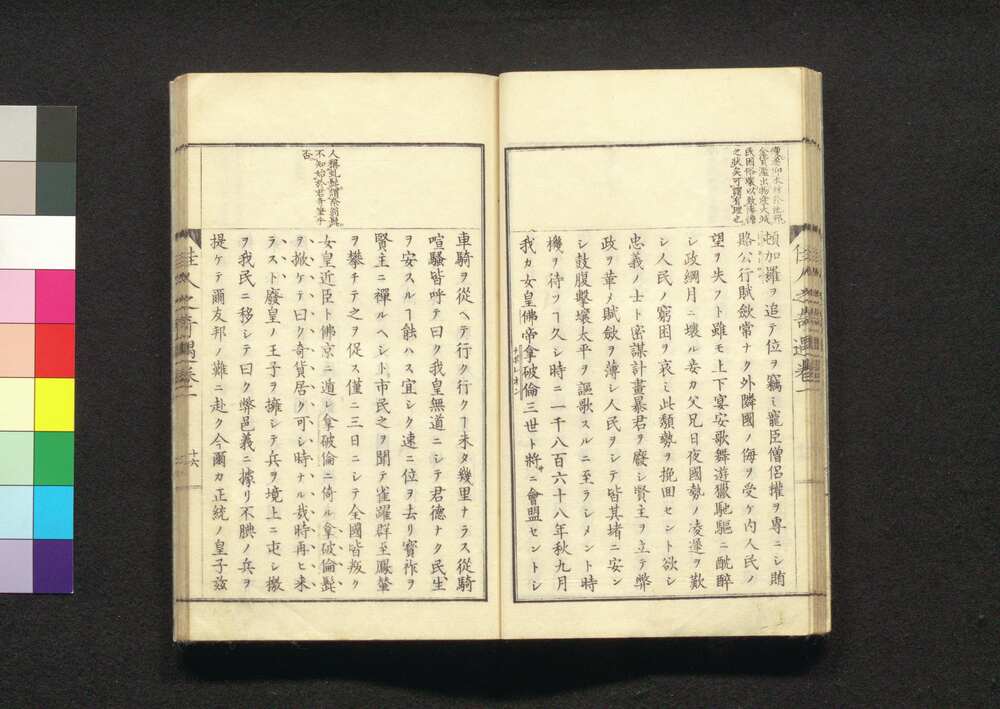 頓加羅ヲ追テ位ヲ竊ミ寵臣僧侶權ヲ專ニシ賄
賂公行賦斂常ナク外隣國ノ侮ヲ受ケ内人民ノ
望ヲ失フト雖モ上下宴安歌舞遊獵馳驅ニ酖醉
シ政綱月ニ壞ル妾カ父兄日夜國勢ノ凌遲ヲ歎
シ人民ノ窮困ヲ哀ミ此頽勢ヲ挽回セント欲シ
忠義ノ士ト密謀計畫暴君ヲ廢シ賢主ヲ立テ弊
政ヲ革メ賦斂ヲ薄シ人民ヲシテ皆其堵ニ安ン
シ鼓腹撃壤太平ヲ謳歌スルニ至ラシメント時
機ヲ待ツヿ久シ時ニ一千八百六十八年秋九月
我カ女皇佛帝拿破倫三世ト將ニ會盟セントシ
車騎ヲ從ヘテ行ク行クヿ未タ幾里ナラス從騎
喧騷皆呼テ曰ク我皇無道ニシテ君德ナク民生
ヲ安スルヿ能ハス宜シク速ニ位ヲ去リ寳祚ヲ
賢主ニ禪ルヘシト市民之ヲ聞テ雀躍群至鳳輦
ヲ攀チテ之ヲ促ス僅ニ三日ニシテ全國皆叛ク
女皇近臣ト佛京ニ遁レ拿破倫ニ倚ル拿破倫髭
ヲ掀ケテ曰ク奇貨居ク可シ時ナル哉時再ヒ來
ラスト廢皇ノ王子ヲ擁シテ兵ヲ境上ニ屯シ檄
ヲ我民ニ移シテ曰ク弊邑義ニ據リ不腆ノ兵ヲ
提ケテ爾友邦ノ難ニ赴ク今爾カ正統ノ皇子玆
佳人之奇遇卷一
十六